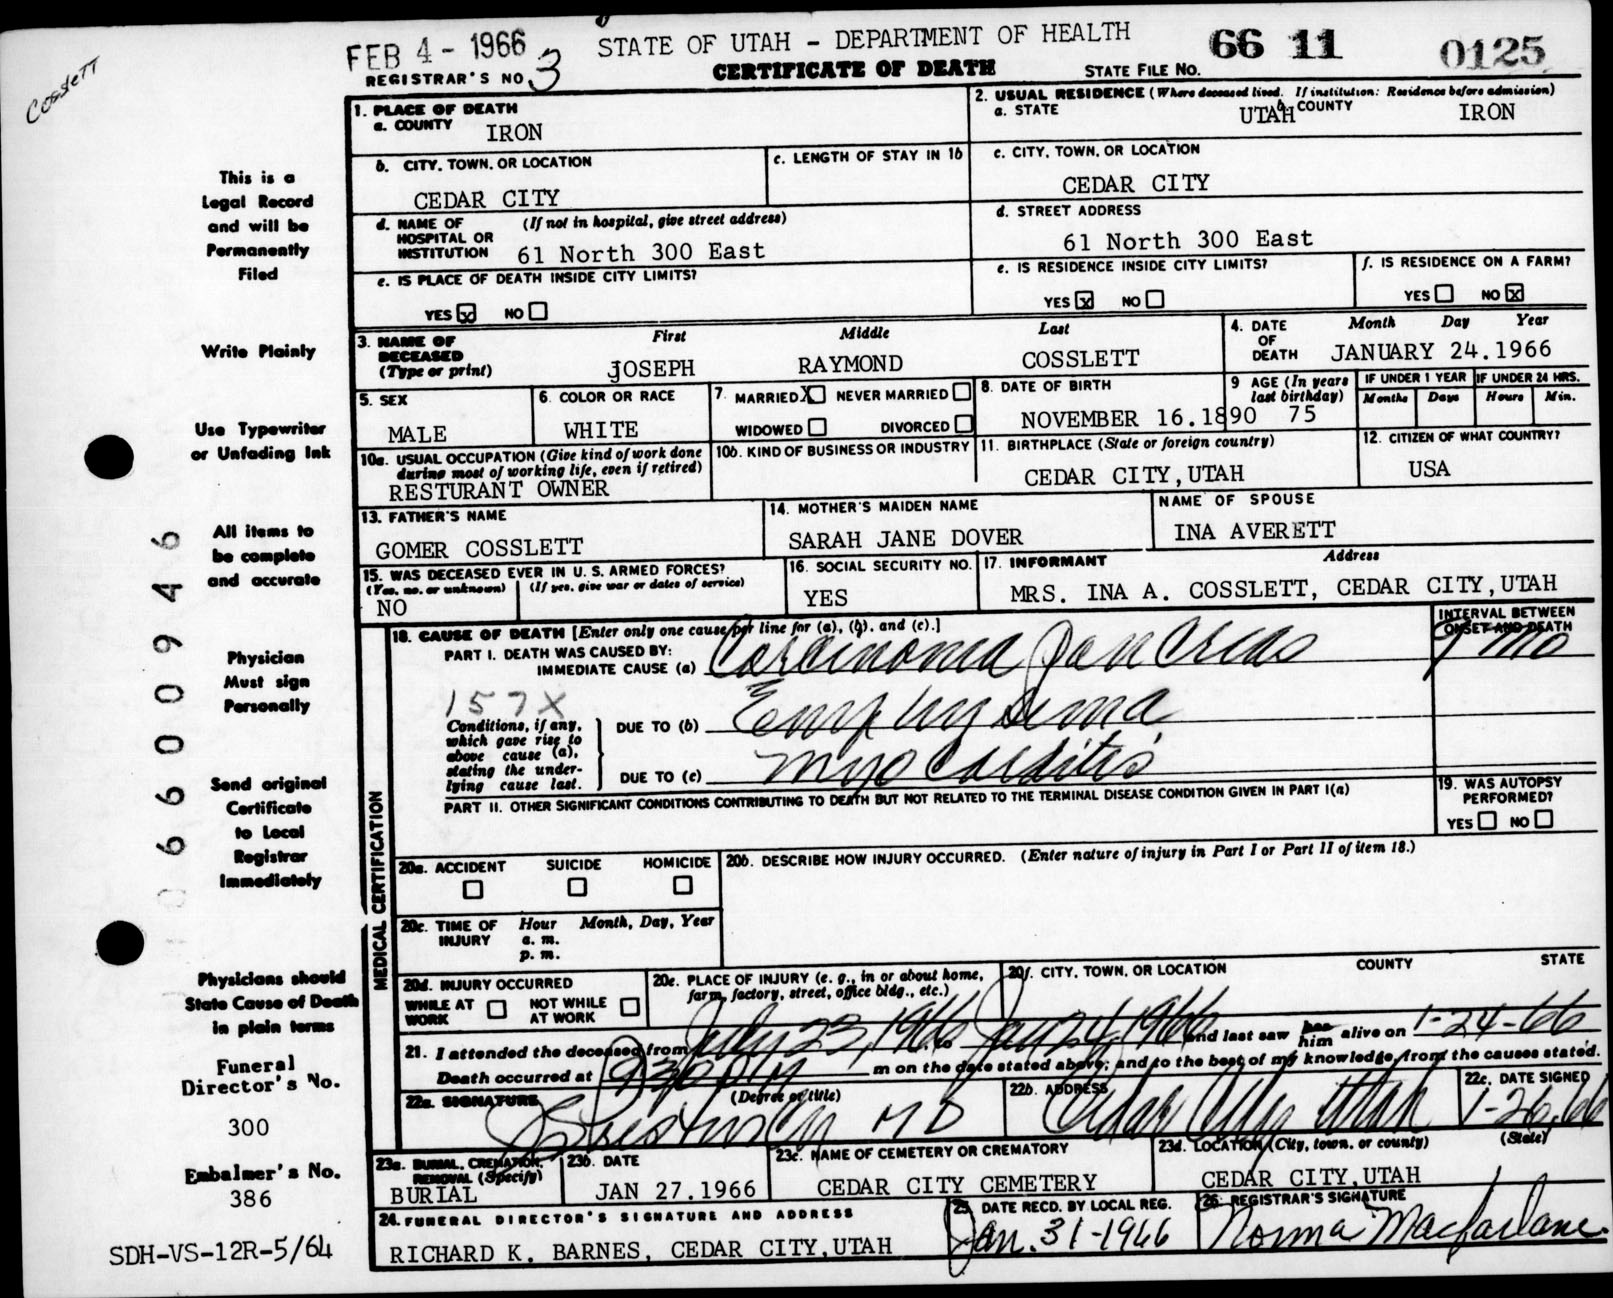 Cosslett
FEB 4 - 1966 STATE OF UTAH - DEPARTMENT OF HEALTH 66 11 0125
REGISTRAR'S NO. 3 CERTIFICATE OF DEATH STATE FILE NO.
1. PLACE OF DEATH
a. COUNTY IRON
2. USUAL RESIDENCE (Where deceased lived. If institution: Residence before admission)
a. STATE UTAH b. COUNTY IRON
b. CITY, TOWN, OR LOCATION CEDAR CITY
c. LENGTH OF STAY IN 1b
c. CITY, TOWN, OR LOCATION
CEDAR CITY
d. NAME OF HOSPITAL OR INSTITUTION (If not in hospital, give street address)
61 North 300 East
d. STREET ADDRESS
61 North 300 East
e. IS PLACE OF DEATH INSIDE CITY LIMITS?
YES X NO
e. IS RESIDENCE INSIDE CITY LIMITS?
YES X NO
f. IS RESIDENCE ON A FARM?
YES NO X
3. NAME OF DECEASED (Type or print)
First Middle Last
JOSEPH RAYMOND COSSLETT
4. DATE OF DEATH Month Day Year
JANUARY 24.1966
5. SEX
MALE
6. COLOR OR RACE
WHITE
7. MARRIED X NEVER MARRIED
WIDOWED DIVORCED
8. DATE OF BIRTH
NOVEMBER 16.1890
9 AGE (In years last birthday)
75
IF UNDER 1 YEAR IF UNDER 24 HRS.
Months Days Hours Min.
10a. USUAL OCCUPATION (Give kind of work done during most of working life, even if retired)
RESTURANT OWNER
10b. KIND OF BUSINESS OR INDUSTRY
11. BIRTHPLACE (State or foreign country)
CEDAR CITY,UTAH
12. CITIZEN OF WHAT COUNTRY?
USA
13. FATHER'S NAME
GOMER COSSLETT
14. MOTHER'S MAIDEN NAME
SARAH JANE DOVER
NAME OF SPOUSE
INA AVERETT
15. WAS DECEASED EVER IN U. S. ARMED FORCES?
(Yes, no, or unknown) (If yes, give war or dates of service)
NO
16. SOCIAL SECURITY NO.
YES
17. INFORMANT Address
MRS. INA A. COSSLETT, CEDAR CITY,UTAH
MEDICAL CERTIFICATION
18. CAUSE OF DEATH [Enter only one cause per line for (a), (b), and (c).]
INTERVAL BETWEEN ONSET AND DEATH
PART I. DEATH WAS CAUSED BY:
IMMEDIATE CAUSE (a) Carcinoma Pancreas
157X
Conditions, if any, which gave rise to above cause (a), stating the underlying cause last.
DUE TO (b) Emphysema
DUE TO (c) Myocarditis
PART II. OTHER SIGNIFICANT CONDITIONS CONTRIBUTING TO DEATH BUT NOT RELATED TO THE TERMINAL DISEASE CONDITION GIVEN IN PART I(a)
19. WAS AUTOPSY PERFORMED?
YES NO
20a. ACCIDENT SUICIDE HOMICIDE
20b. DESCRIBE HOW INJURY OCCURRED. (Enter nature of injury in Part I or Part II of item 18.)
20c. TIME OF INJURY Hour Month, Day, Year
a. m.
p. m.
20d. INJURY OCCURRED
WHILE AT WORK NOT WHILE AT WORK
20e. PLACE OF INJURY (e. g., in or about home, farm, factory, street, office bldg., etc.)
20f. CITY, TOWN, OR LOCATION COUNTY STATE
21. I attended the deceased from July 23, 1966 to Jan 24, 1966 and last saw her him alive on 1-24-66
Death occurred at 930 PM m on the date stated above; and to the best of my knowledge, from the causes stated.
22a. SIGNATURE (Degree or title)
M D
22b. ADDRESS
Cedar City Utah
22c. DATE SIGNED
1-26,66
23a. BURIAL, CREMATION, REMOVAL (Specify)
BURIAL
23b. DATE
JAN 27.1966
23c. NAME OF CEMETERY OR CREMATORY
CEDAR CITY CEMETERY
23d. LOCATION (City, town, or county) (State)
CEDAR CITY,UTAH
24. FUNERAL DIRECTOR'S SIGNATURE AND ADDRESS
RICHARD K. BARNES, CEDAR CITY,UTAH
25. DATE RECD. BY LOCAL REG.
Jan. 31-1966
26. REGISTRAR'S SIGNATURE
Norma Macfarlane
This is a
Legal Record
and will be
Permanently
Filed
Write Plainly
Use Typewriter
or Unfading Ink
All items to
be complete
and accurate
Physician
Must sign
Personally
Send original
Certificate
to Local
Registrar
Immediately
Physicians should
State Cause of Death
in plain terms
Funeral
Director's No.
300
Embalmer's No.
386
SDH-VS-12R-5/64
0660 0946